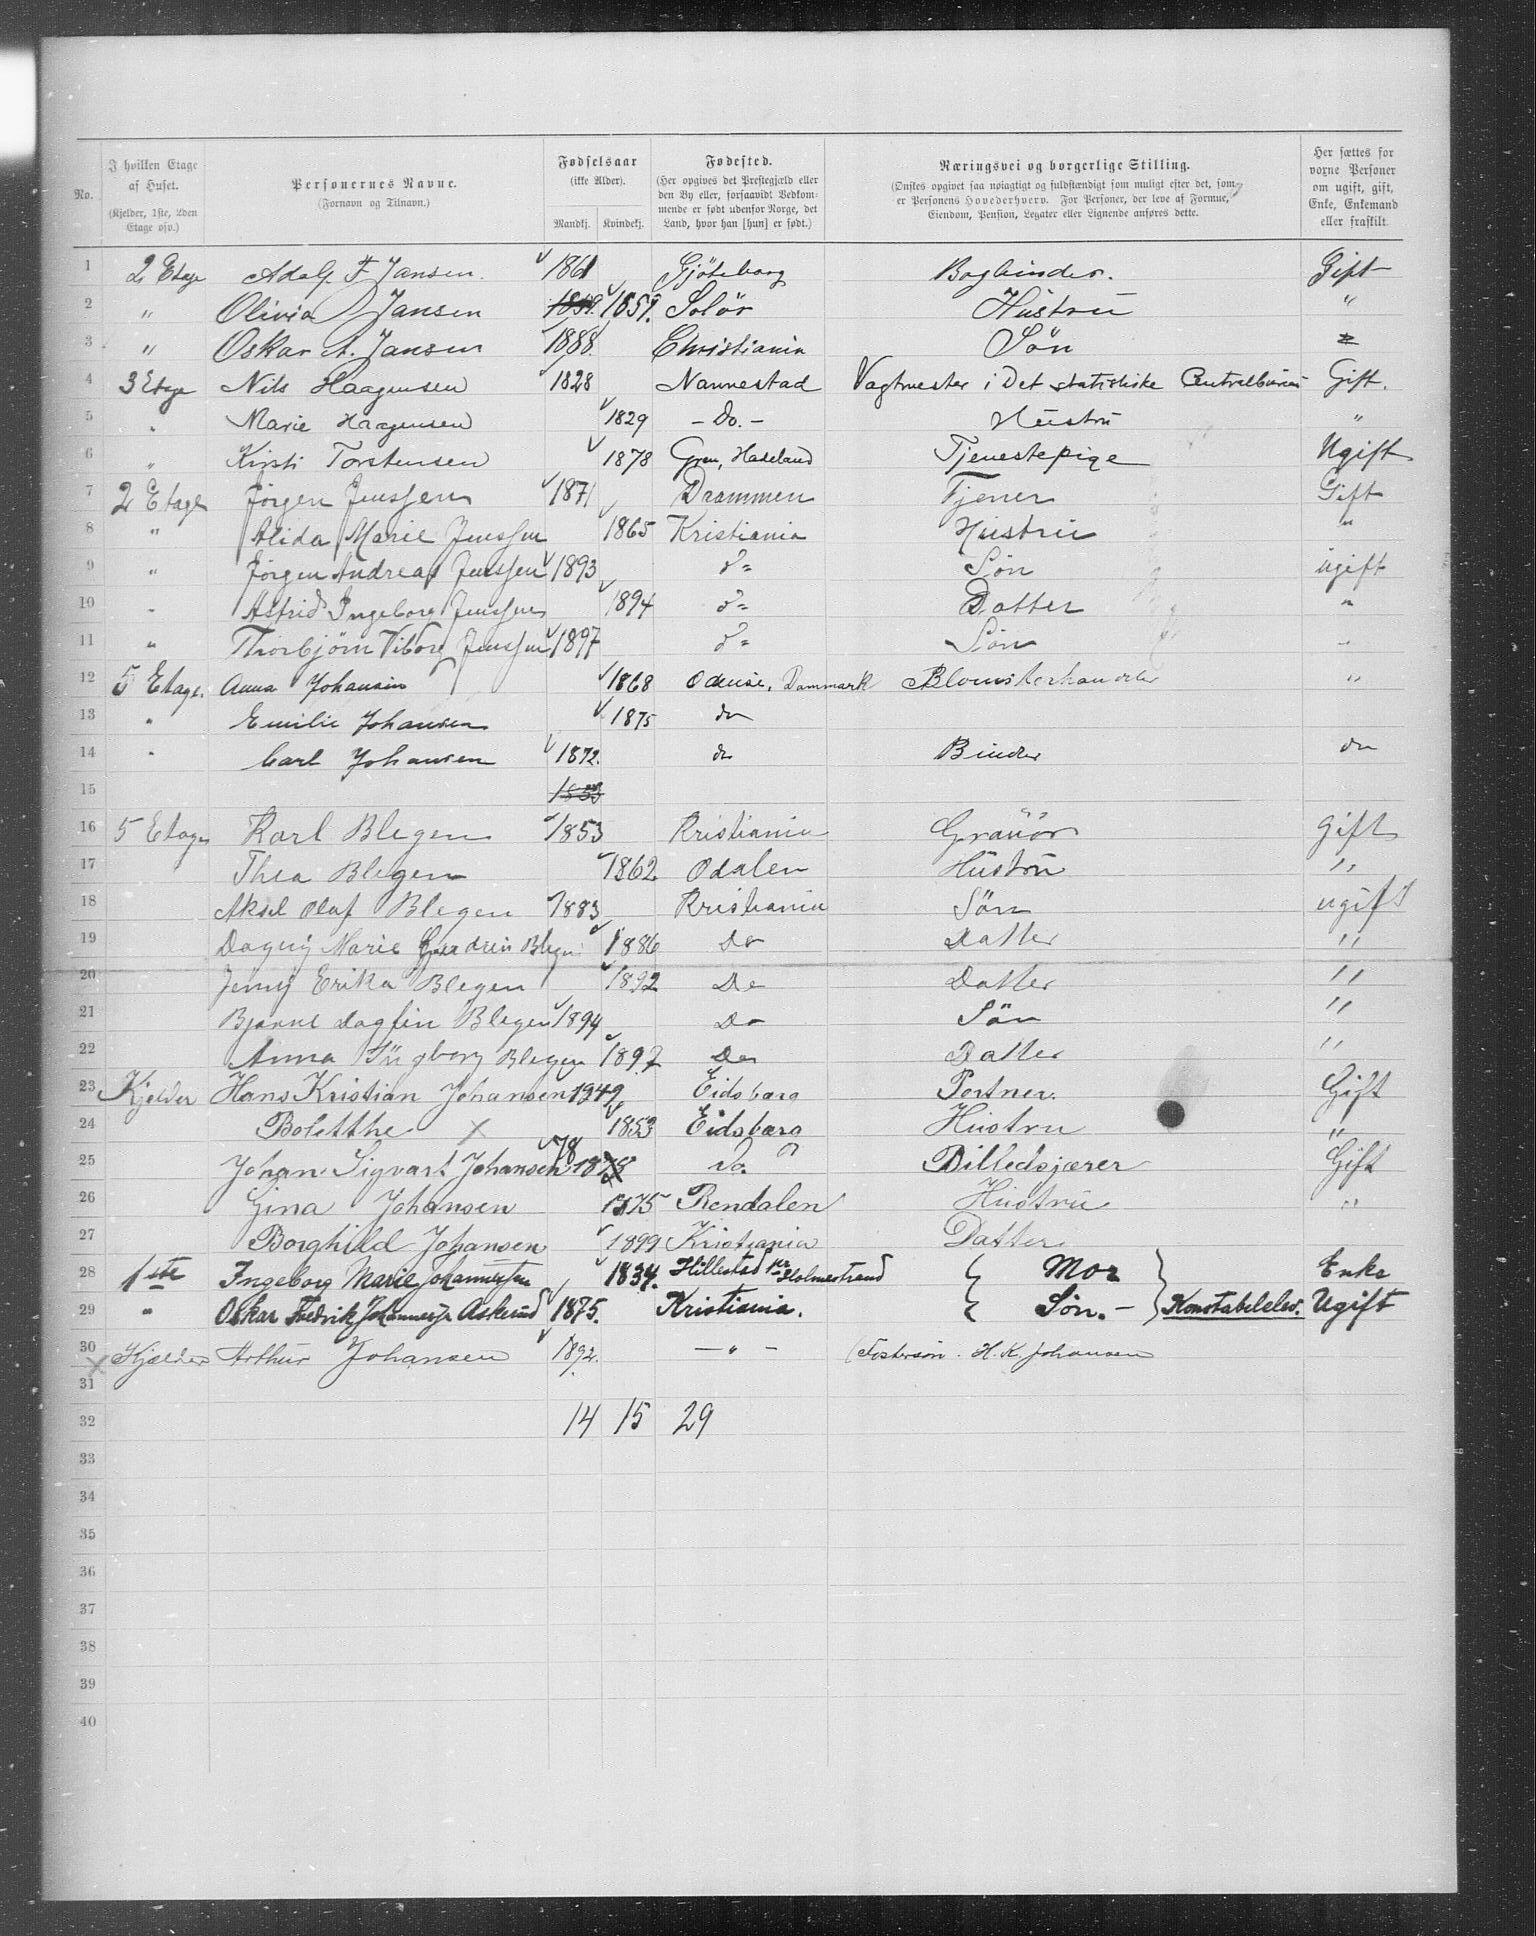 No. | I hvilken Etage af Huset. (Kjelder, 1ste, 2den Etage osv.) | Personernes Navne. (Fornavn og Tilnavn.) | Fødselsaar (ikke Alder). Mandkj. | Kvindekj. | Fødested. (Her opgives det Prestegjæld eller den By eller, forsaavidt Vedkommende er født udenfor Norge, det Land, hvor han [hun] er født.) | Næringsvei og borgerlige Stilling. (Ønskes opgivet saa nøiagtigt og fuldstændigt som muligt efter det, som er Personens Hovederhverv. For Personer, der leve af Formue, Eiendom, Pension, Legater eller Lignende anføres dette. | Her sættes for voxne Personer om ugift, gift, Enke, Enkemand eller fraskilt.
1 2 Etage Adolf F Jansen. 1861 Gjøteborg Bogbinder. Gift
2 " Olivia Jansen 1859. 1859. Solör Hustru "
3 " Oskar A. Jansen 1888 Christiania Sön
4 3 Etage Nils Haagensen 1828 Nannestad Vagtmester i Det statistiske Centralbureau Gift.
5 " Marie Haagensen 1829 - Do. - Hustru "
6 " Kirsti Torstensen 1878 Gran, Hadeland Tjenestepige Ugift
7 2 Etage Jörgen Jenssen 1871 Drammen Tjener Gift
8 " Alida Marie Jenssen 1865 Kristiania Hustru "
9 " Jörgen Andreas Jenssen 1893 do Sön ugift
10 " Astrid Ingeborg Jenssen 1894 do Datter "
11 " Thorbjörn Viborg Jenssen 1897 do Sön "
12 5 Etage. Anna Johansen 1868 Odense, Danmark Blomsterhandler "
13 " Emilie Johansen 1875 do
14 " Carl Johansen 1872. do Binder do
15 1853
16 5 Etage Karl Blegen 1853 Kristiania Gravör gift
17 Thea Blegen 1862 Odalen Hustru "
18 Aksel Olaf Blegen 1883 Kristiania Sön ugift
19 Dagny Marie Blegen 1886 Do Datter "
20 Jenny Erika Blegen 1892 Do Datter "
21 Bjarne Dagfin Blegen 1894 Do Sön "
22 Anna Ingborg Blegen 1897 Do Datter "
23 Kjelder Hans Kristian Johansen 1849 Eidsberg Portner. Gift
24 Boletthe × 1853 Eidsberg Hustru "
25 Johan Sigvart Johansen 1878 78 Do. Billedsjærer Gift
26 Gina Johansen 1875 Rendalen Hustru "
27 Borghild Johansen 1899 Kristiania Datter
28 1ste Ingeborg Marie Johannessen 1834. Hillestad pr Holmestrand { Mor } Enke
29 " Oskar Fredrik Johannessen Askerud 1875. Kristiania. { Søn. - } Konstabelelev. Ugift
30 × Kjælder Arthur Johansen 1892. - " - (Fostersön. H. K. Johansen
31
32 14 15 29
33
34
35
36
37
38
39
40